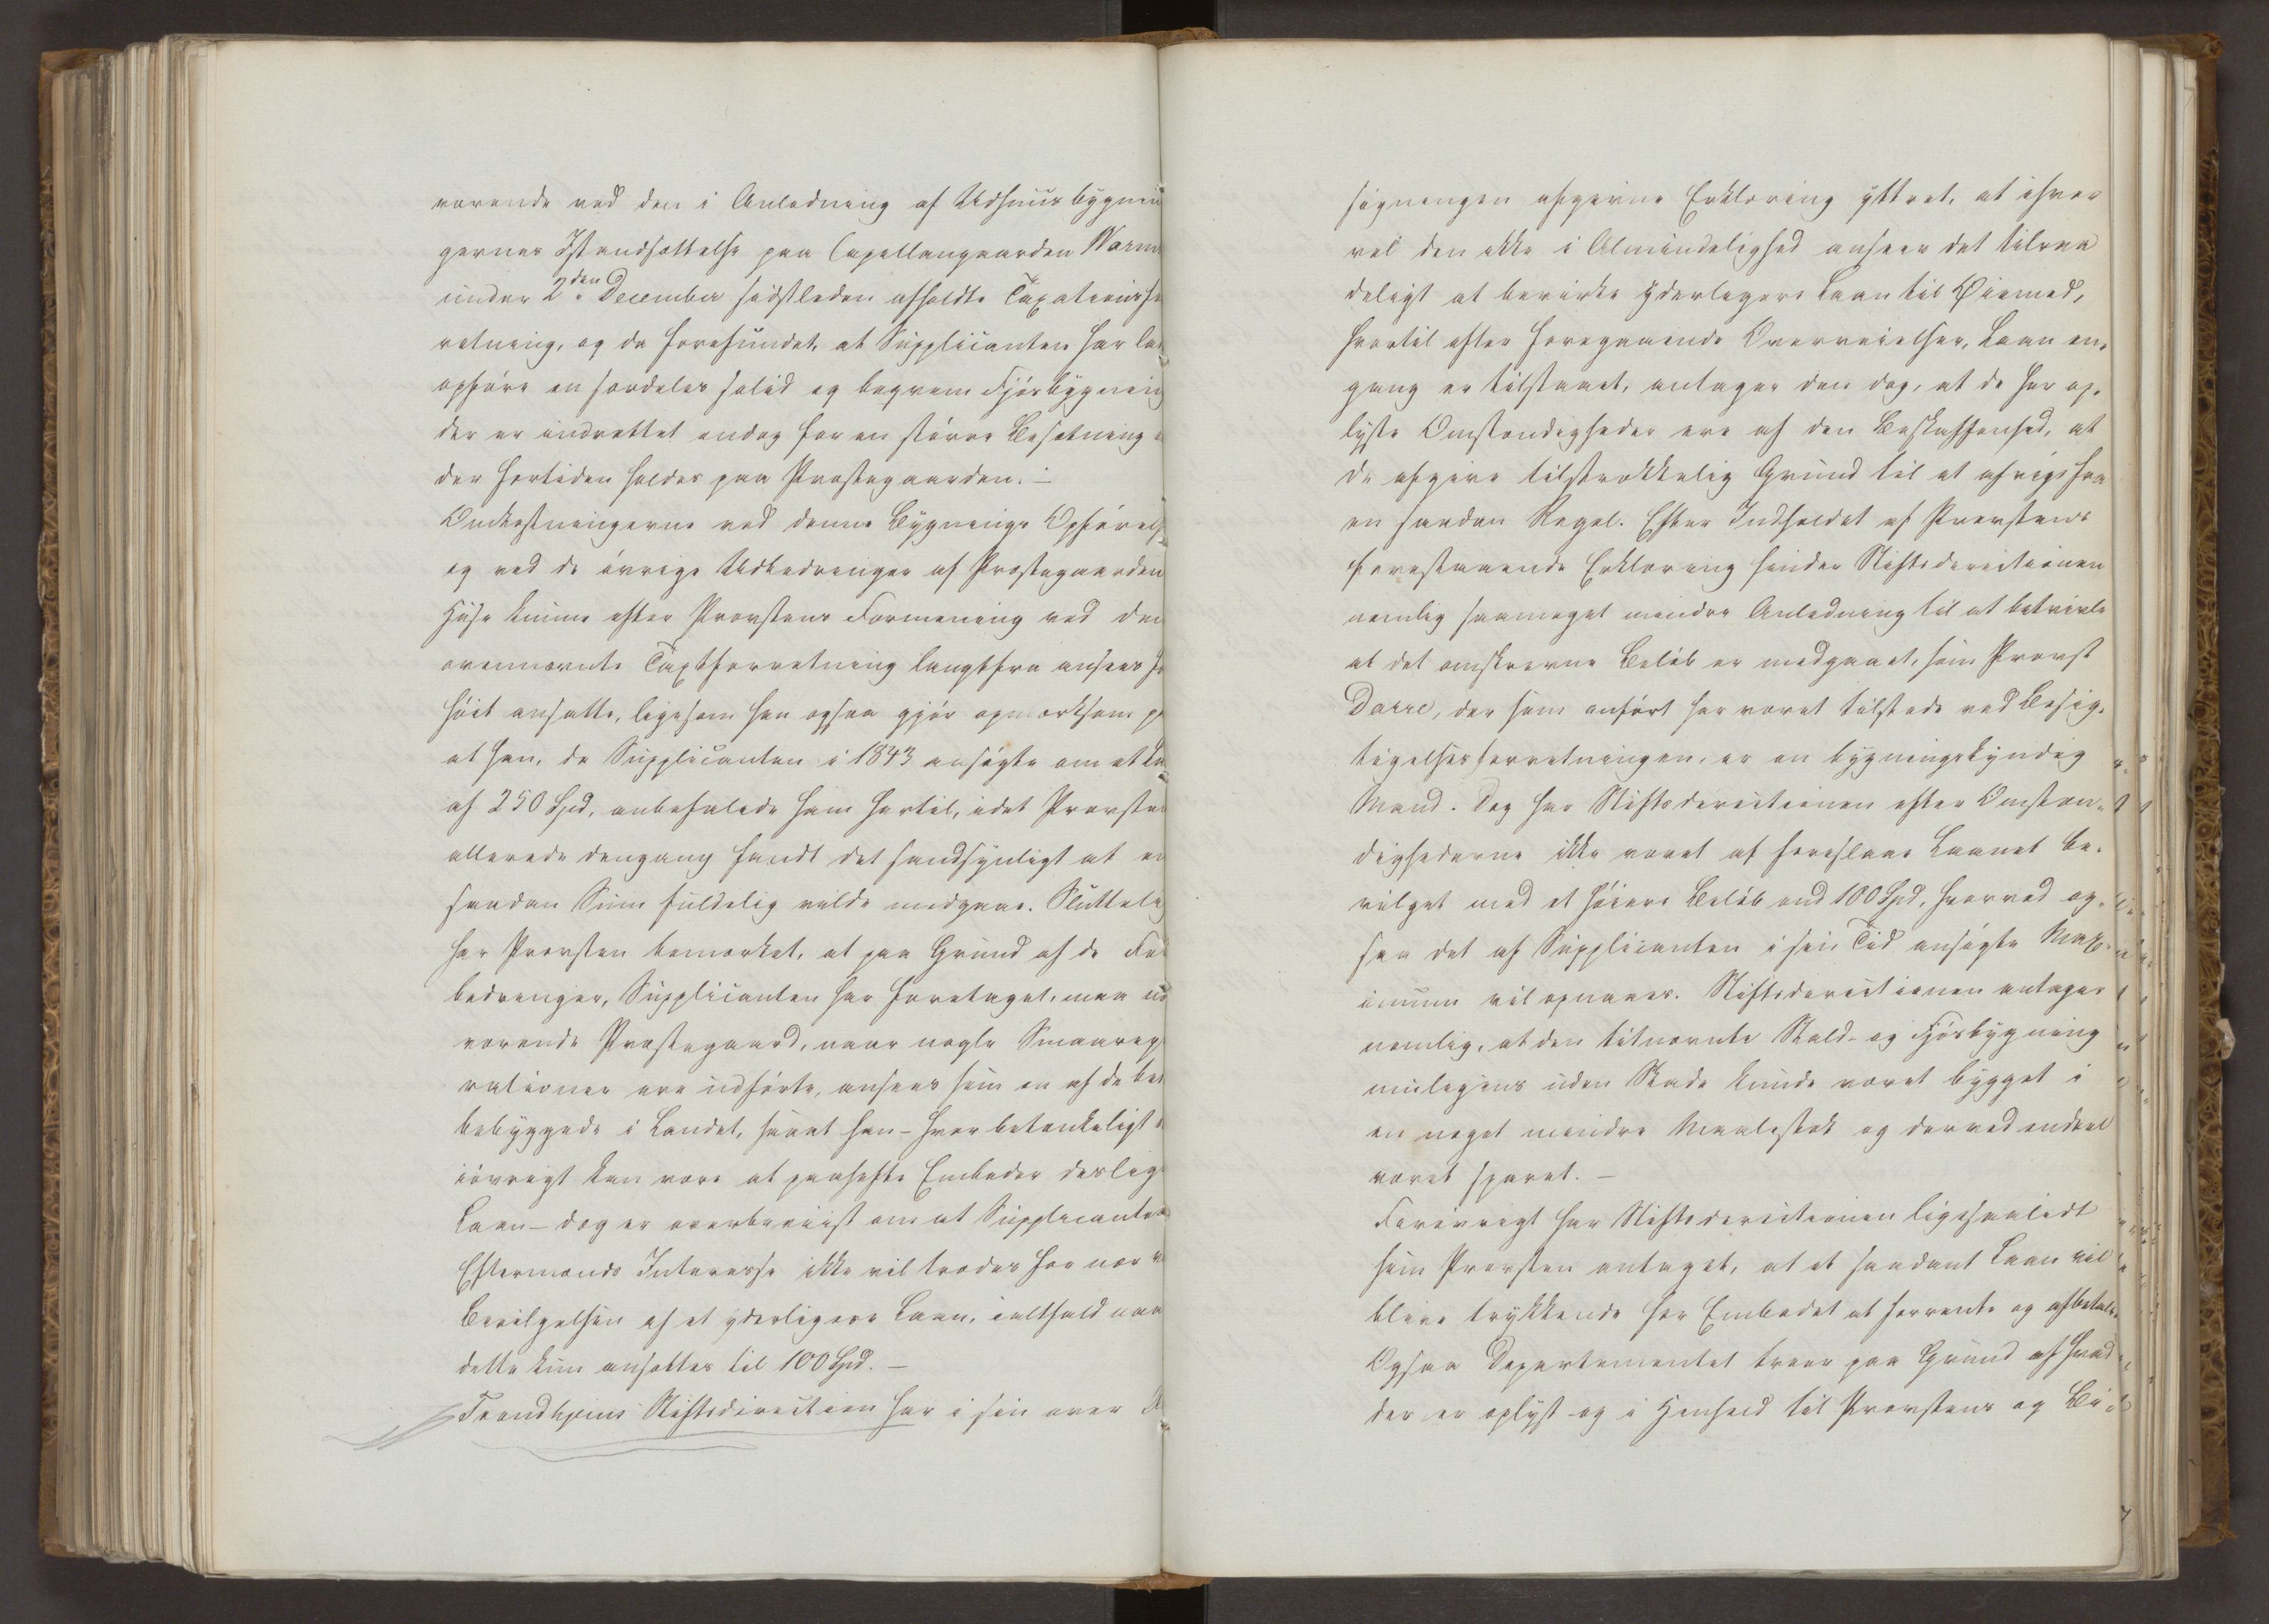 værende ved den i Anledning af Udhuusbygnin
gernes Istandsættelse paa Capellangaarden Warm
under 2den December sidstleden afholdte Taxations
retning, og da forefundet, at Supplicanten har lad
opføre en særdeles solid og beqvem Fjøsbygning
der er indrettet endog for en større Besætning
der fortiden holdes paa Præstegaarden. –
Omkostningerne ved denne Bygnings Opførels
og ved de øvrige Udbedringer af Præstegaarden
Huse kunne efter Provstens Formening ved den
ovennævnte Taxtforretning langtfra ansees
høit ansatte, ligesom han ogsaa gjør opmærksom p
at han, da Supplicanten i 1843 ansøgte om et La
af 250 Spd, anbefalede ham hertil, idet Provsten
allerede dengang fandt det sandsynligt at en
saadan Sum fuldelig vilde medgaae. Slutteli
har Provsten bemærket, at paa Grund af de For
bedringer, Supplicanten har foretaget, maa nu
værende Præstegaard, naar nogle Smaarepa
rationer ere udførte, ansees som en af de bed
bebyggede i Landet, saaat han – hvor betænkeligt
iøvrigt kan være at paahefte Embeder deslige
Laan – dog er overbeviist om at Supplicanten
Eftermands Interesse ikke vil trædes for nær
Bevilgelsen af et yderligere Laan, ialtfald naa
dette kun ansættes til 100 Spd. –
Trondhjems Stiftsdirection har i sin over
søgningen afgivne Erklæring yttret, at ihvor
vel den ikke i Almindelighed anseer det tilraa
deligt at bevirke yderligere Laan til Øiemed,
hvortil efter foregaaende Overveielser, Laan en,
gang er tilstaaet, antager den dog, at de her op,
lyste Omstændigheder ere af den Beskaffenhed, at
de afgive tilstrækkelig Grund til at afvige fra
en saadan Regel. Efter Indholdet af Provstens
forestaaende Erklæring finder Stiftsdirectionen
nemlig saameget mindre Anledning til at betvivle
at det omskrevne Beløb er medgaaet, som Provst
Darre, der som anført har været tilstede ved Besig,
tigelsesforretningen, er en bygningskyndig
Mand. Dog har Stiftsdirectionen efter Omstæn,
dighederne ikke været at foreslaae Laanet be,
vilget med et høiere Beløb end 100 Spd, hvorved og,
saa det af Supplicanten i sin Tid ansøgte Max,
imum vil opnaaes. Stiftsdirectionen antager
nemlig, at den titnævnte Stald- og Fjøsbygning
muligens uden Skade kunde været bygget i
en noget mindre Maalestok og derved endeel
været sparet. –
Forøvrigt har Stiftsdirectionen ligesaalidt
som Provsten antaget, at et saadant Laan vil
blive trykkende for Embedet at forrente og afbetale.
Ogsaa Departementet troer paa Grund af hvad
der er oplyst og i Henhold til Provstens og Bi